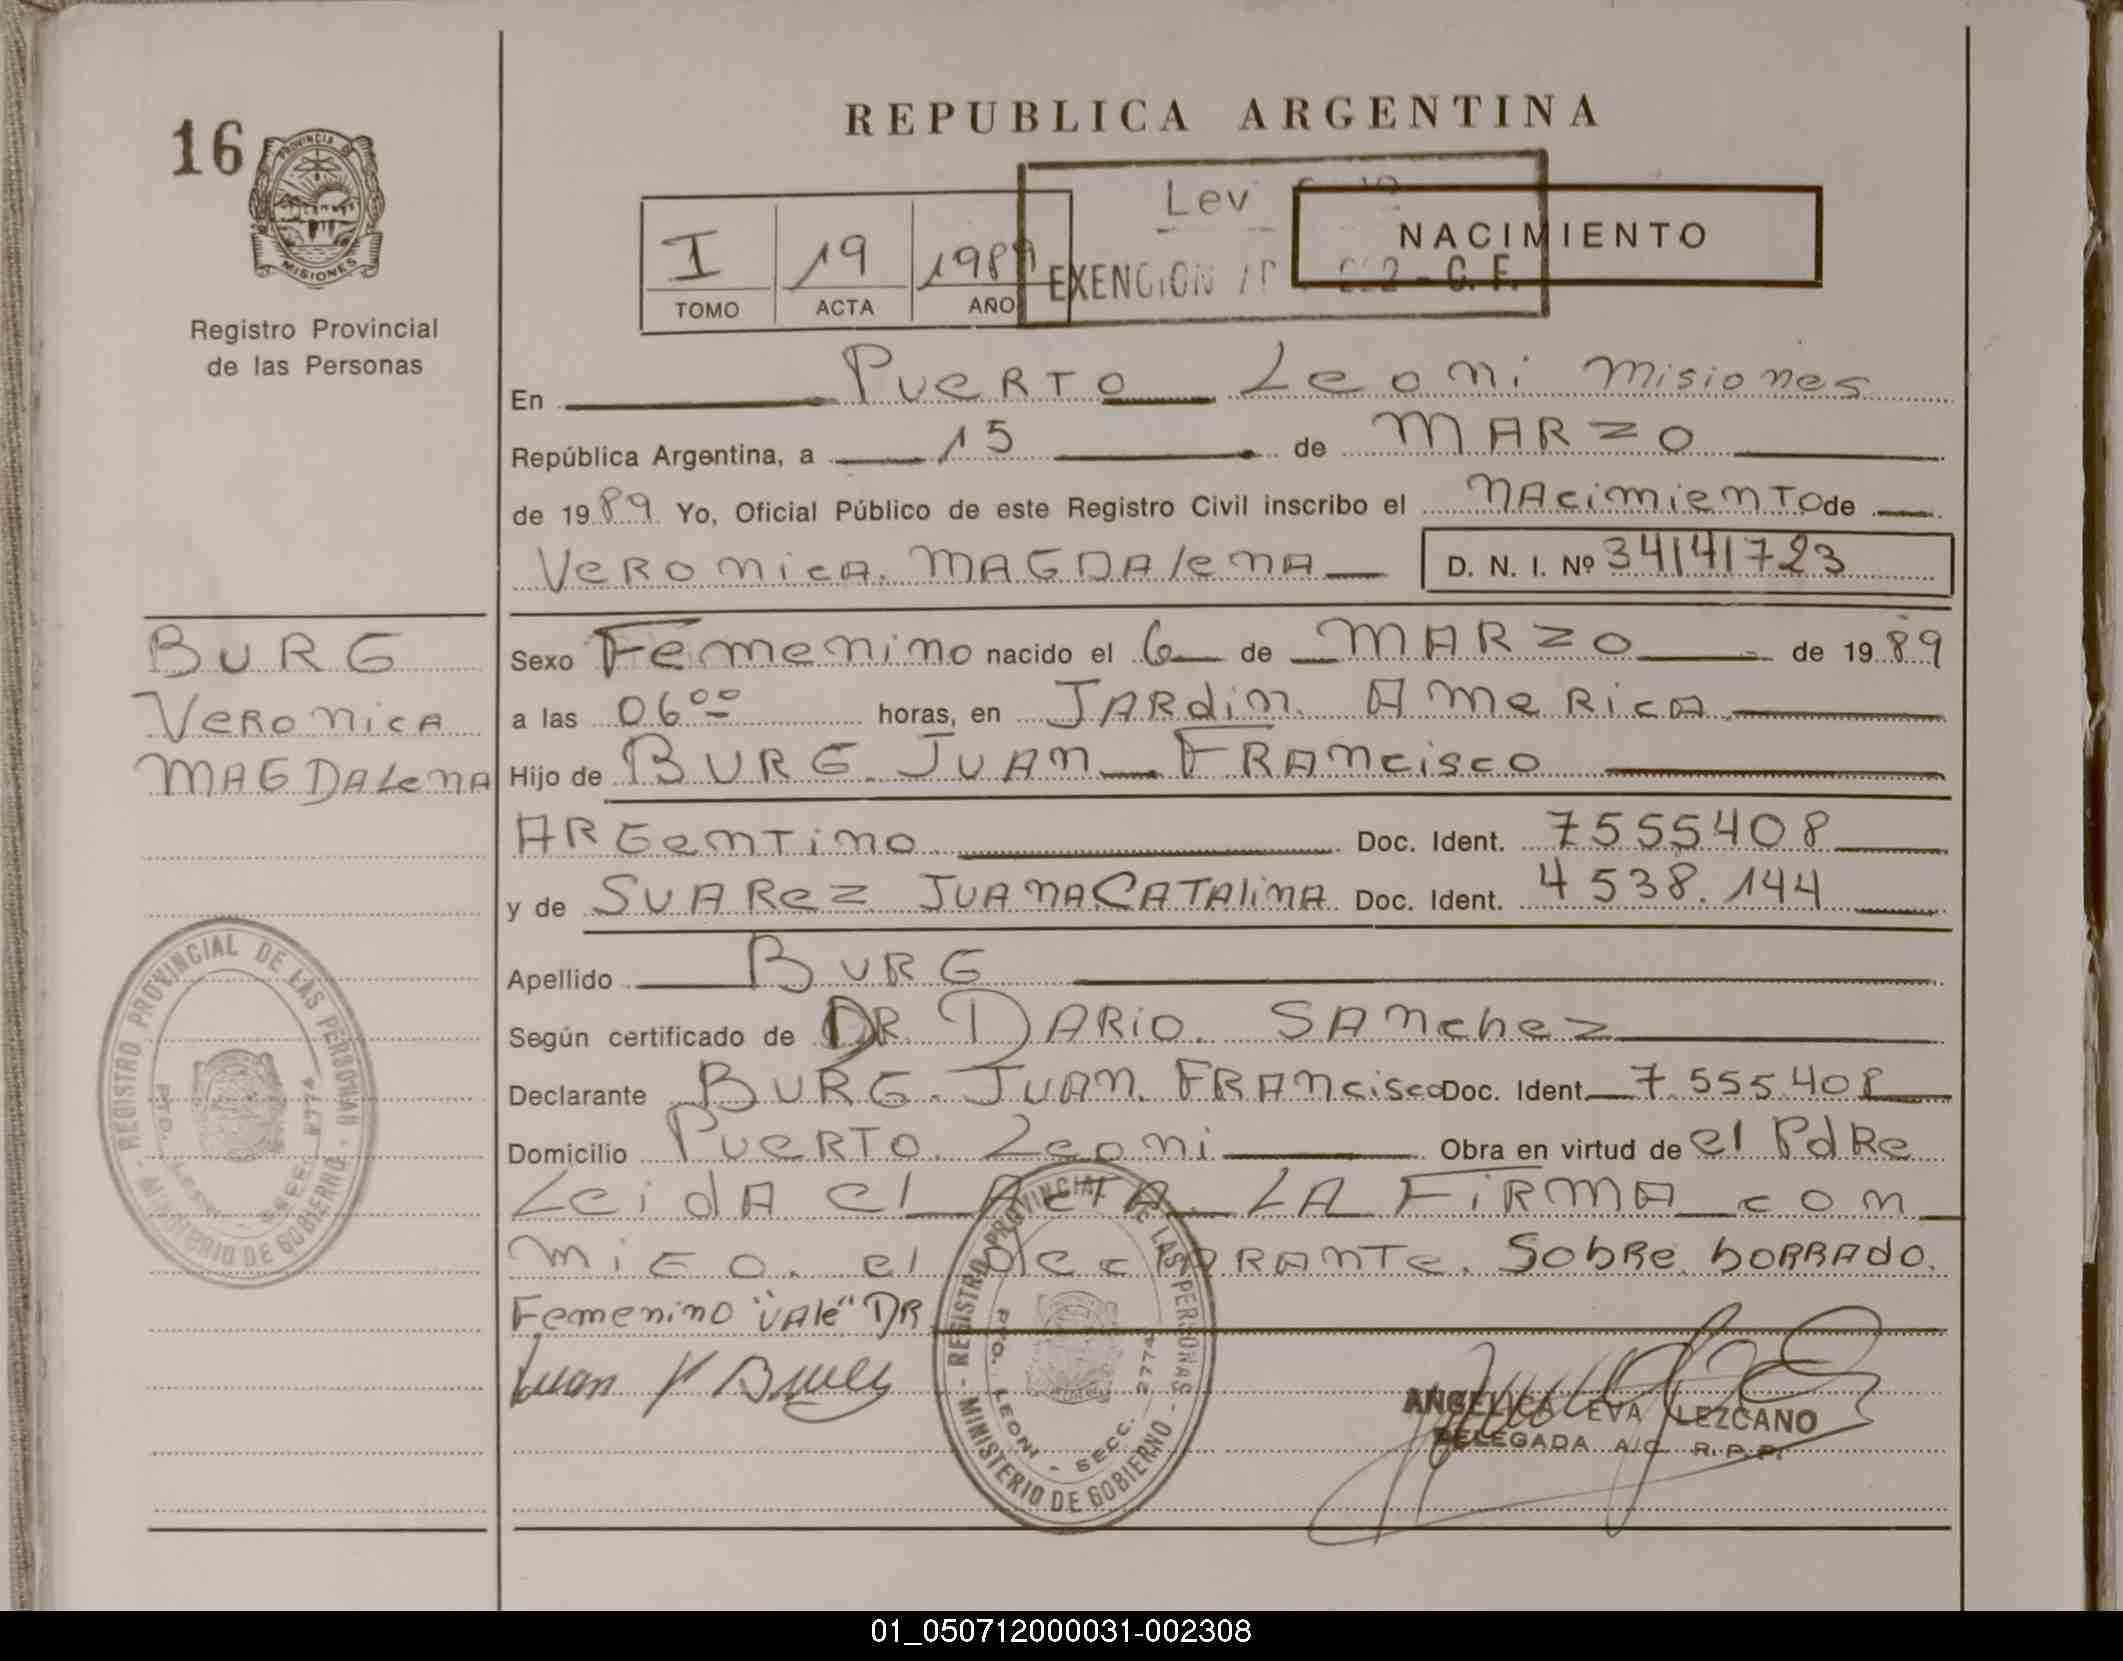 REPUBLICA ARGENTINA
16
PROVINCIA DE
MISIONES
Registro Provincial
de las Personas
I 19 1989
TOMO ACTA AÑO
Ley
EXENCION
C. F.
NACIMIENTO
En Puerto Leoni Misiones
República Argentina, a 15 de MARZO
de 1989 Yo, Oficial Público de este Registro Civil inscribo el Nacimiento de
Veronica Magdalena D. N. I. Nº 34141723
BURG
Veronica
MAGDALeNA
Sexo Femenino nacido el 6 de MARZO de 1989
a las 06⁰⁰ horas, en JARdin AmeRicA
Hijo de BURG JUAN FRANcisco
ARGenTino Doc. Ident. 7555408
y de SUAReZ JUANA CATALiNA Doc. Ident. 4538.144
Apellido BURG
Según certificado de DR DARio SANchez
Declarante BURG JUAN FRANcisco Doc. Ident. 7.555.408
Domicilio PueRTO Leoni Obra en virtud de el PdRe
LeidA el ActA LA FiRMA con
miGo el DecLARANTe. SobRe boRRAdo.
Femenino "vAle" DR
Juan F Burg
ANGELICA EVA LEZCANO
DELEGADA A/C R.P.P.
REGISTRO PROVINCIAL DE LAS PERSONAS - MINISTERIO DE GOBIERNO -
PTO. LEONI - SECC. 2774
REGISTRO PROVINCIAL DE LAS PERSONAS - MINISTERIO DE GOBIERNO -
PTO. LEONI - SECC. 2774
01_050712000031-002308